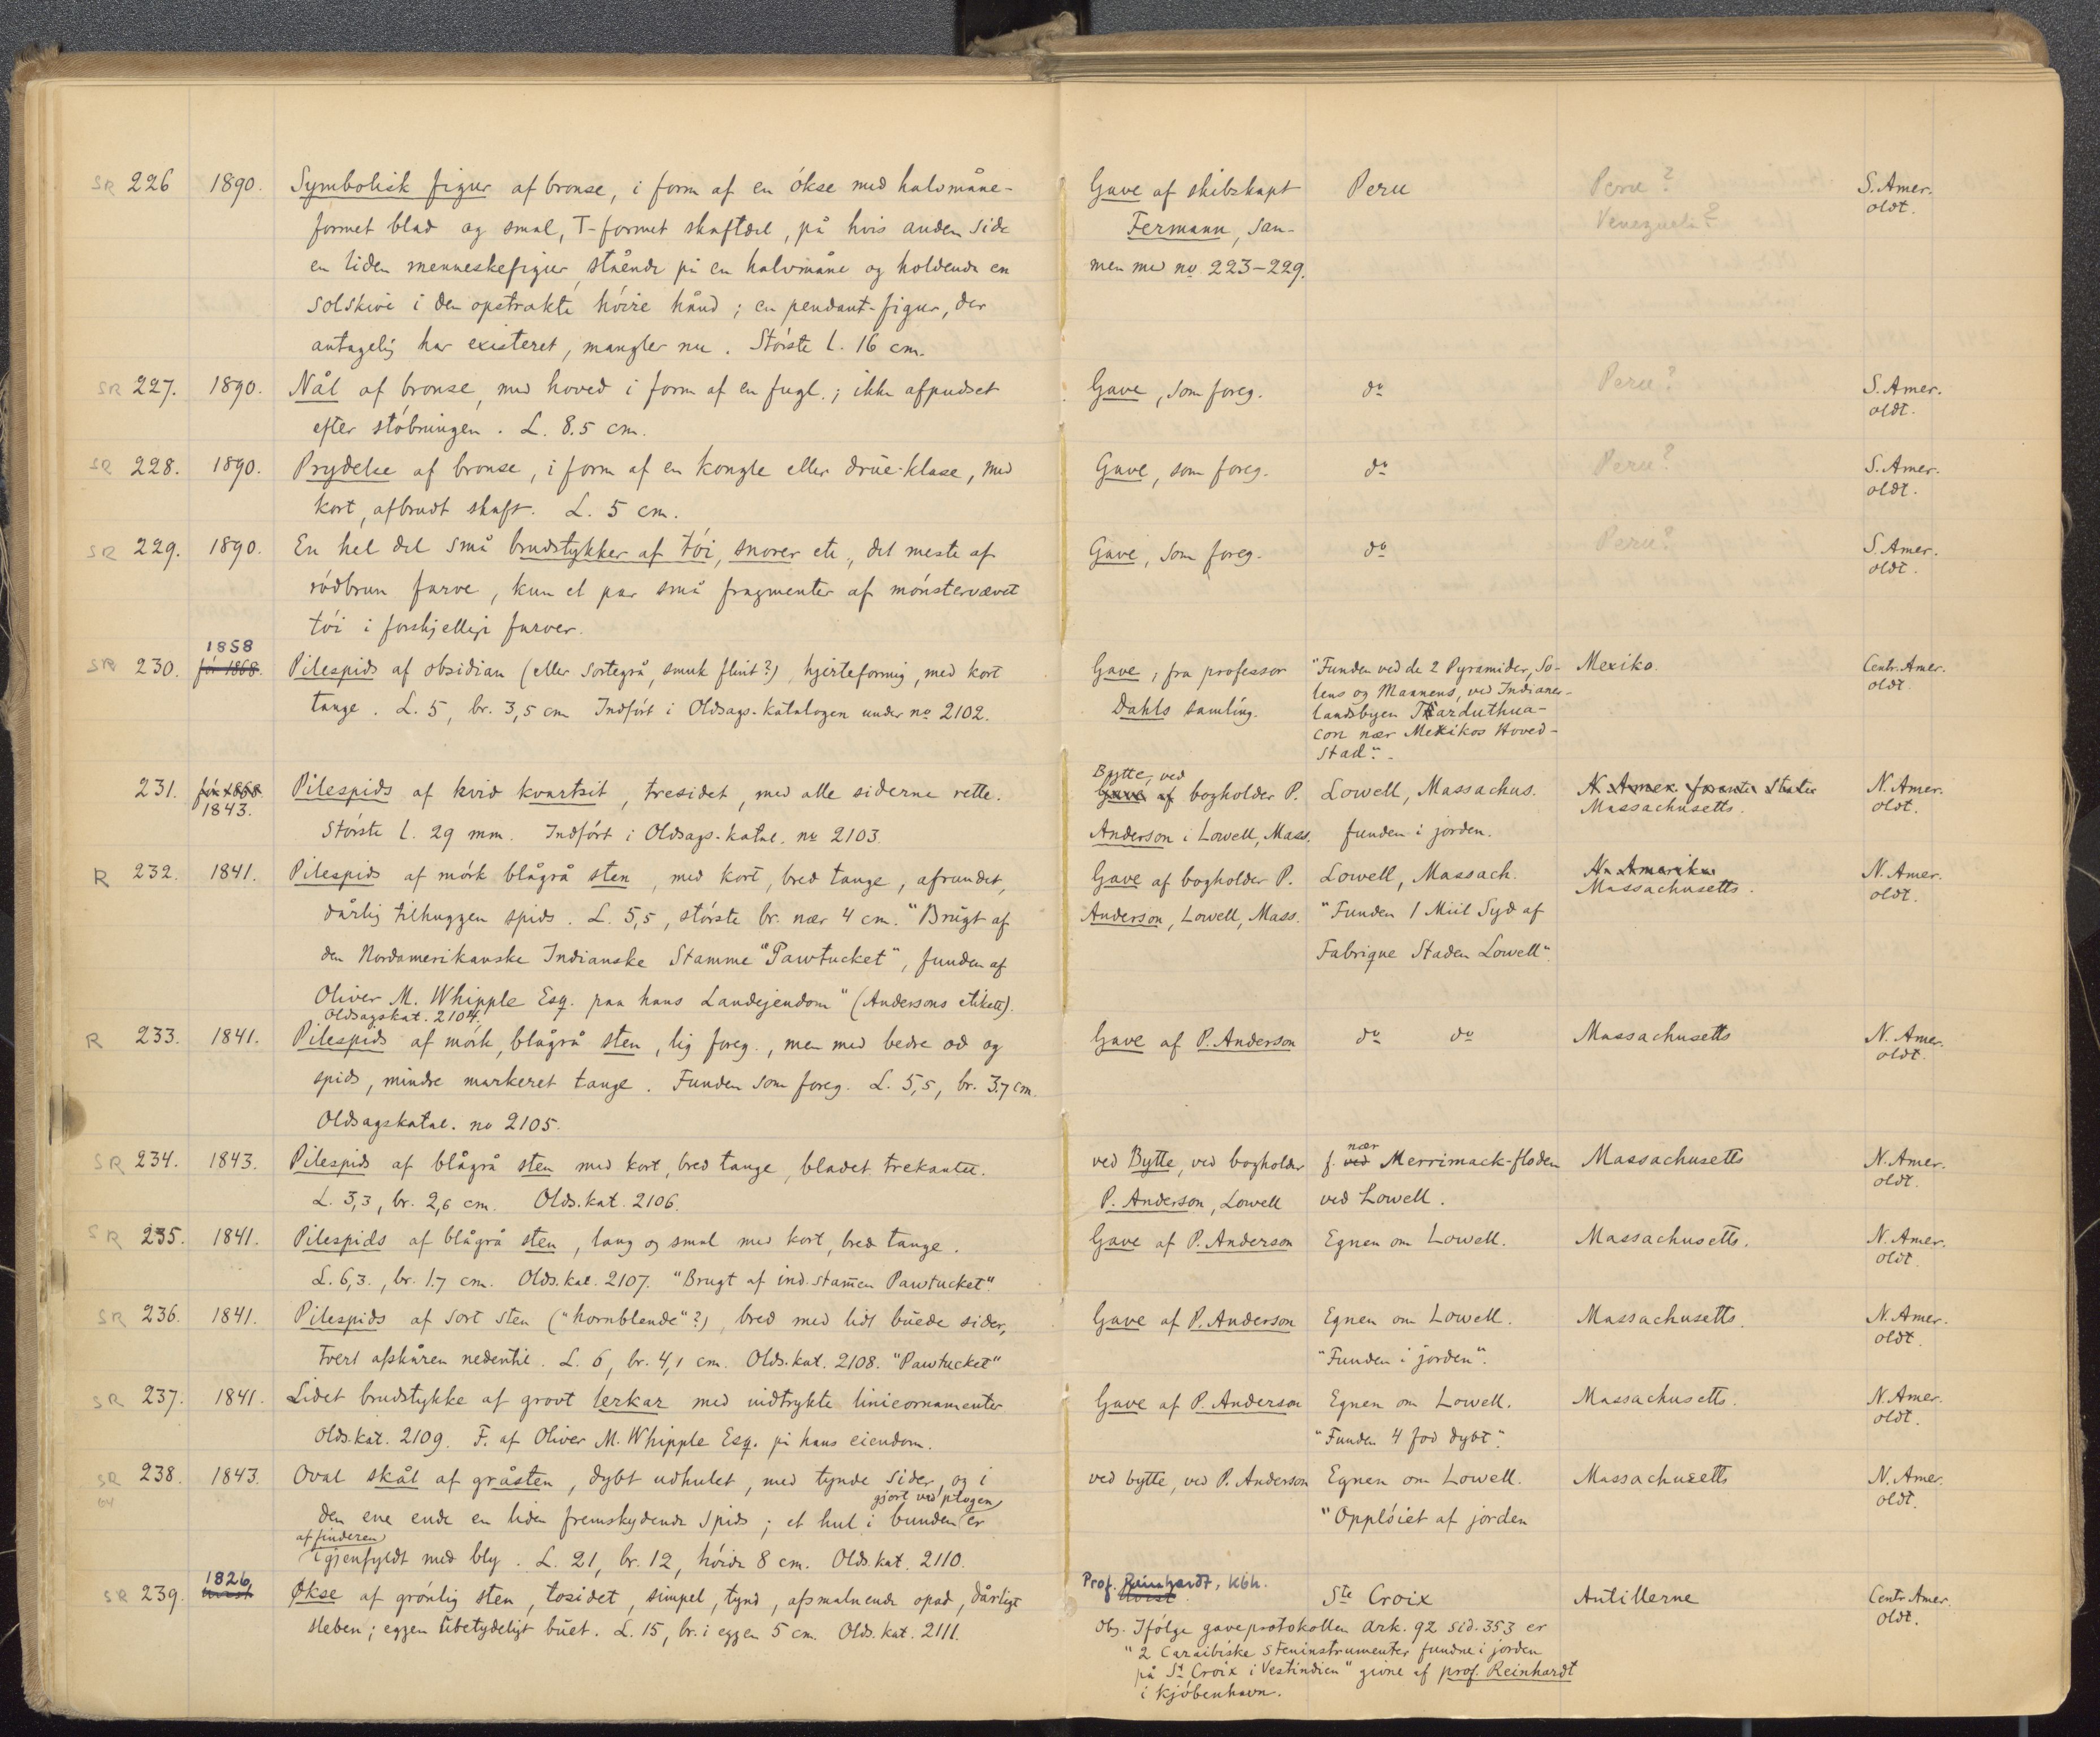 SR 226 1890. Symbolisk figur af bronse, i form af en økse med halvmåne- Gave af skibskapt Peru Peru? S. Amer.
formet blad og smal, T-formet skaftdel, på hvis anden side Fermann, sam- Venezuela? oldt.
en liden menneskefigur, stående på en halvmåne og holdende en men med no 223-229.
solskive i den opstrakte høire hånd; en pendant-figur, der
antagelig har existeret, mangler nu. Største l. 16 cm.
SR 227. 1890. Nål af bronse, med hoved i form af en fugl; ikke afpudset Gave, som foreg. do Peru? S. Amer.
efter støbningen. L. 8.5 cm. oldt.
SR 228. 1890. Prydelse af bronse, i form af en kongle eller drue-klase, med Gave, som foreg. do Peru? S. Amer.
kort, afbrudt skaft. L. 5 cm. oldt.
SR 229. 1890. En hel del små brudstykker af tøi, snorer etc., det meste af Gave, som foreg. do Peru? S. Amer.
rødbrun farve, kun et par små fragmenter af mønstervævet oldt.
tøi i forskjellige farver.
1858
SR 230. før 1868. Pilespids af obsidian (eller sortegrå, smuk flint?), hjerteformig, med kort Gave, fra professor "Funden ved de 2 Pyramider, So- Mexiko. Centr. Amer.
tange. L. 5, br. 3,5 cm Indført i Oldsags-katalogen under no 2102. Dahls samling. lens og Maanens, ved Indianer- oldt.
landsbyen Tearduthua-
con nær Mexikos Hoved-
stad".
Bytte, ved
231. før 1868 Pilespids af hvid kvartsit, tresidet, med alle siderne rette. Gave af bogholder P. Lowell, Massachus. N. Amer. forente Stater N. Amer.
1843. Største l. 29 mm. Indført i Oldsags-katal. no 2103. Anderson i Lowell, Mass. funden i jorden. Massachusetts. oldt.
R 232. 1841. Pilespids af mørk blågrå sten, med kort, bred tange, afrundet, Gave af bogholder P. Lowell, Massach. N. Amerika N. Amer.
dårlig tilhuggen spids. L. 5,5, største br. nær 4 cm. "Brugt af Anderson, Lowell, Mass. "Funden 1 Miil Syd af Massachusetts. oldt.
den Nordamerikanske Indianske Stamme "Pawtucket", funden af Fabrique Staden Lowell".
Oliver M. Whipple Esq. paa hans Landejendom" (Andersons etikett).
Oldsagskat. 2104.
R 233. 1841. Pilespids af mørk, blågrå sten, lig foreg., men med bedre od og Gave af P. Anderson do do Massachusetts N. Amer.
spids, mindre markeret tange. Funden som foreg. L. 5,5, br. 3.7 cm. oldt.
Oldsagskatal. no 2105.
SR 234. 1843. Pilespids af blågrå sten med kort, bred tange, bladet trekantet. ved Bytte, ved bogholder f. ved nær Merrimack-floden Massachusetts N. Amer.
L. 3,3, br. 2,6 cm. Olds.kat. 2106. P. Anderson, Lowell ved Lowell. oldt.
SR 235. 1841. Pilespids af blågrå sten, lang og smal med kort, bred tange. Gave af P. Anderson Egnen om Lowell. Massachusetts. N. Amer.
L. 6,3., br. 1.7 cm. Olds.kat. 2107. "Brugt af ind. stam̄en Pawtucket". oldt.
SR 236. 1841. Pilespids af sort sten ("hornblende"?), bred med lidt buede sider, Gave af P. Anderson Egnen om Lowell. Massachusetts. N. Amer.
tvert afskåren nedentil. L. 6, br. 4,1 cm. Olds.kat. 2108. "Pawtucket" "Funden i jorden". oldt.
SR 237. 1841. Lidet brudstykke af grovt lerkar med indtrykte linieornamenter Gave af P. Anderson Egnen om Lowell. Massachusetts. N. Amer.
Olds.kat. 2109. F. af Oliver M. Whipple Esq. på hans eiendom. "Funden 4 fod dybt". oldt.
SR 238. 1843. Oval skål af gråsten, dybt udhulet, med tynde sider, og i ved bytte, ved P. Anderson Egnen om Lowell. Massachusetts N. Amer.
gjort ved plogen
den ene ende en liden fremskydende spids; et hul i bunden er "Oppløiet af jorden oldt.
af finderen
igjenfyldt med bly. L. 21, br. 12, høide 8 cm. Olds.kat. 2110.
1826. Prof. Reinhardt, Kbh.
SR 239. Økse af grønlig sten, tosidet, simpel, tynd, afsmalnende opad, dårligt Ste Croix Antillerne Centr. Amer.
sleben; eggen ubetydeligt buet. L. 15, br. i eggen 5 cm. Olds.kat. 2111. Obs. Ifølge gaveprotokollen Ark. 92 sid. 353 er oldt.
"2 Caraibiske steninstrumenter fundne i jorden
på St Croix i Vestindien" givne af prof. Reinhardt
i Kjøbenhavn.